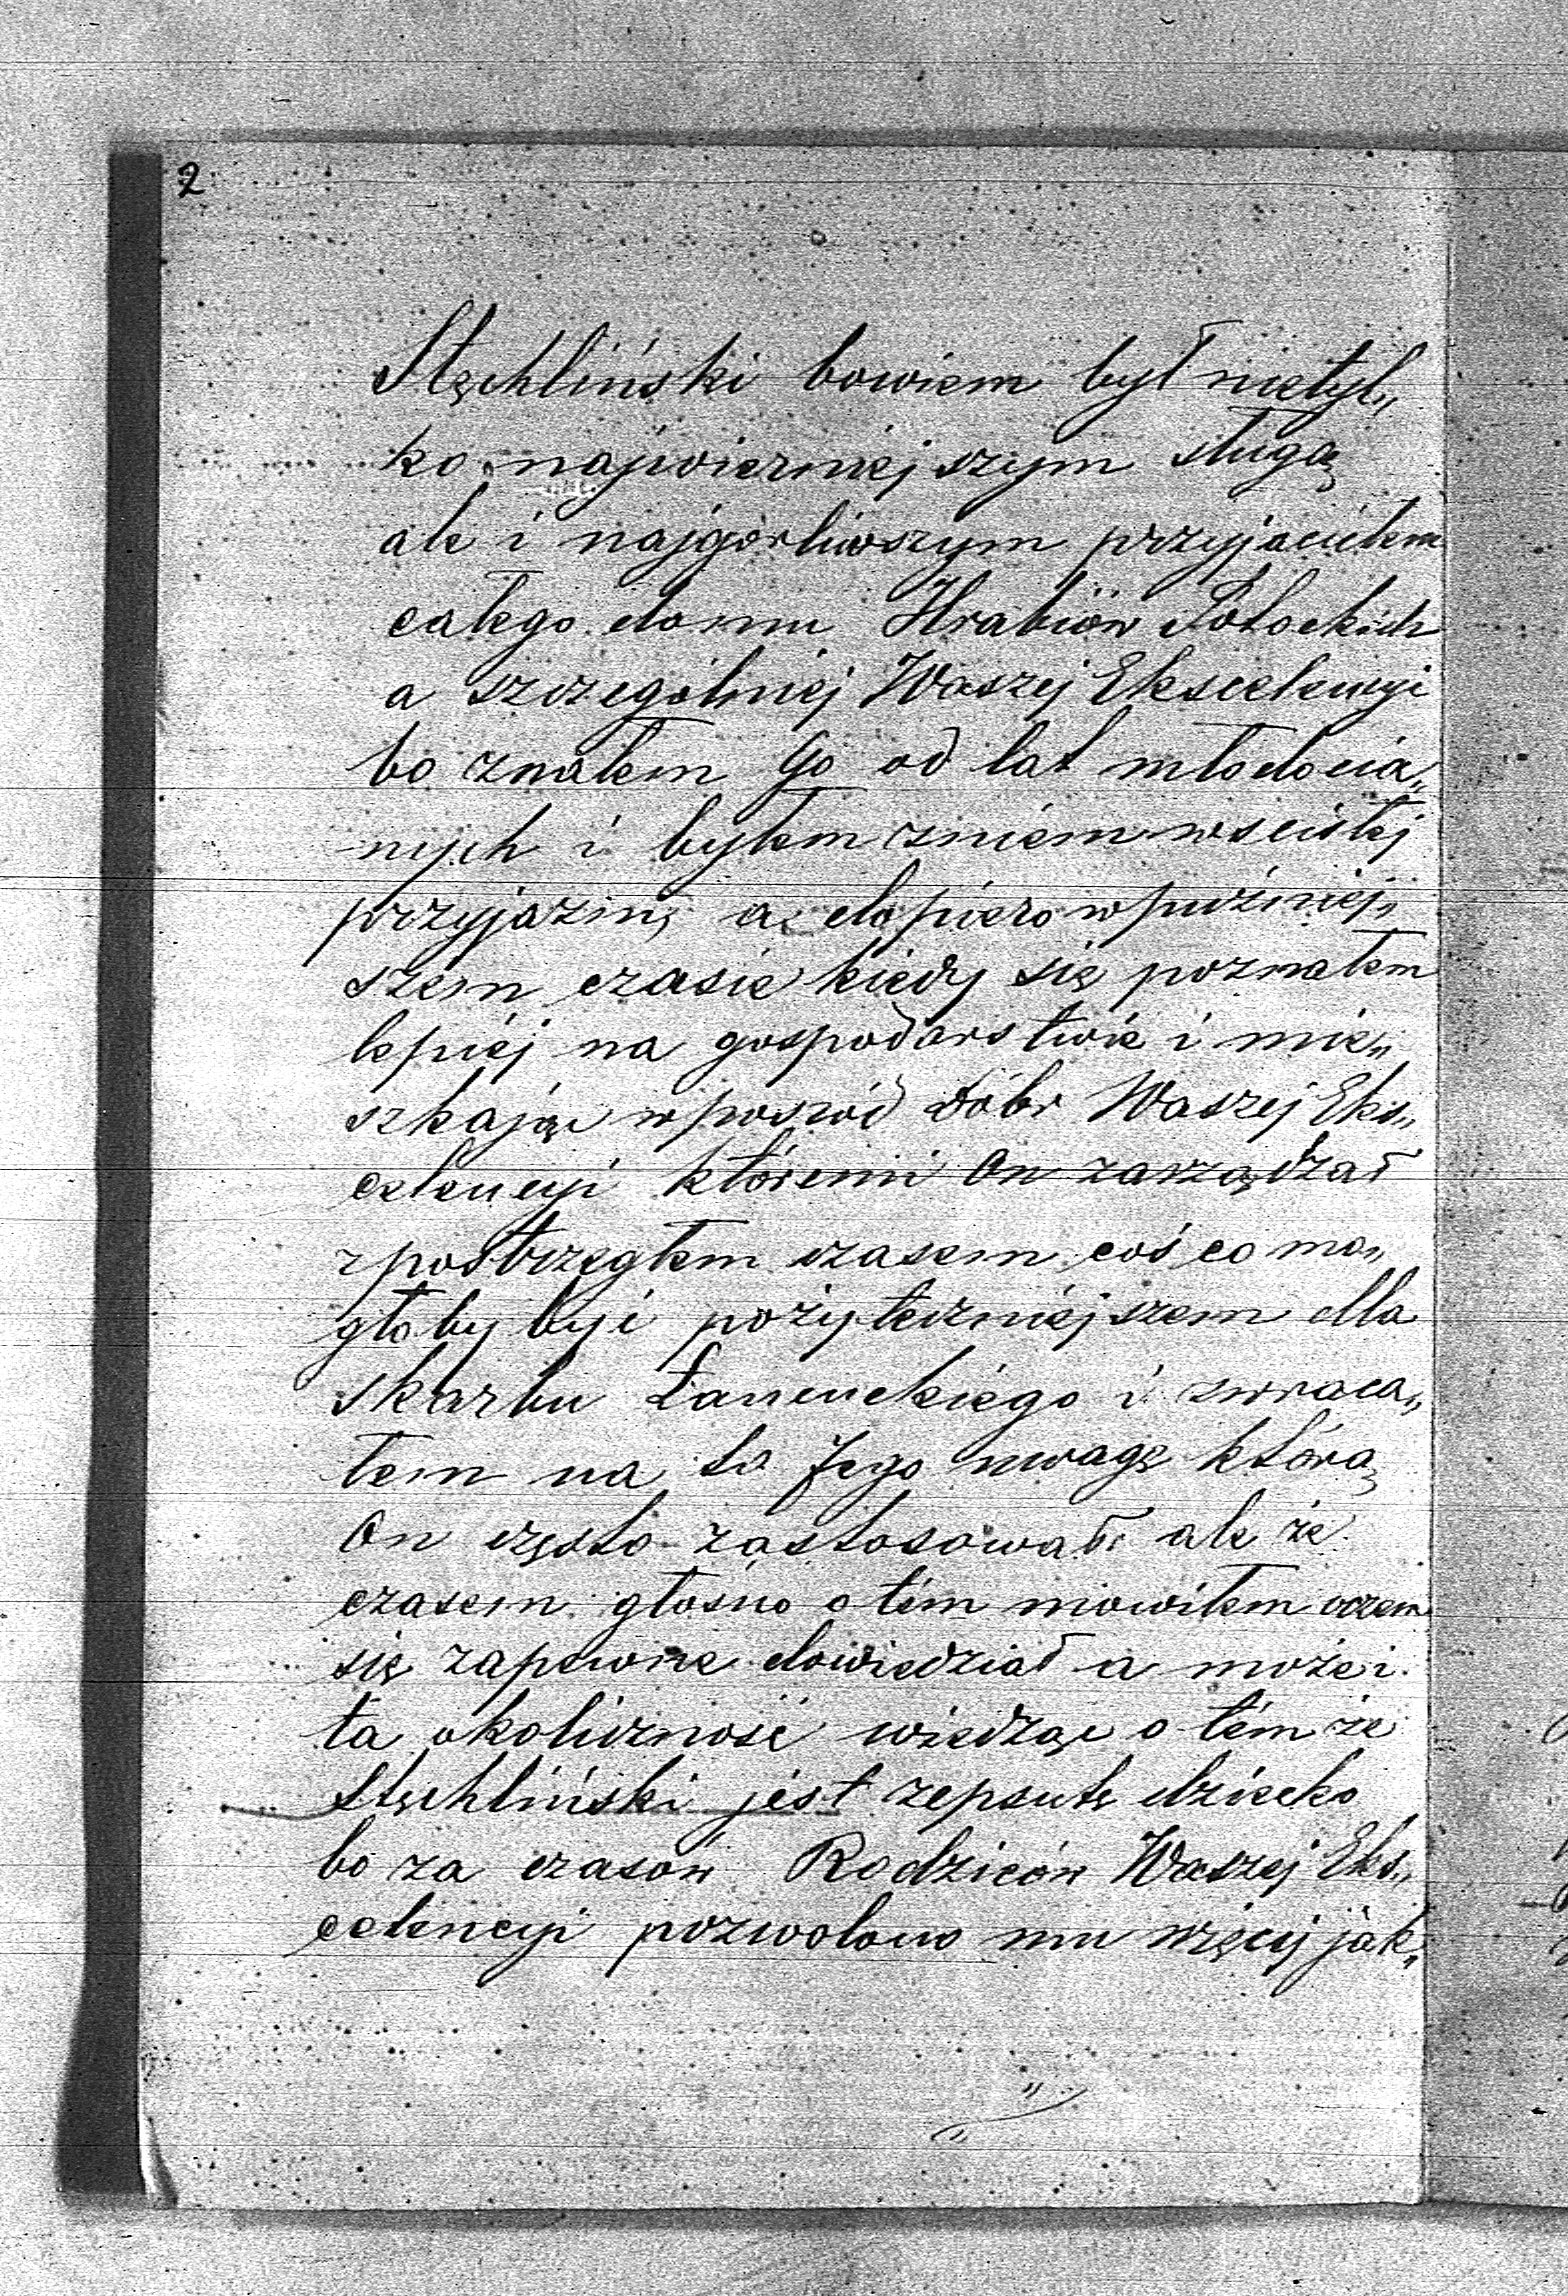 2
Stęchliński bowiem był nietyl„
ko najwierniejszym sługą
ale i najgorliwszym przyjacielem
całego domu Hrabiów Potockich
a szczególniej Waszej Ekscelencyi
bo znałem Go od lat młodocia„
nych i byłem zniem w scisłej
przyjazni, a dopiero w puźniej„
szem czasie kiedy się poznałem
lepiej na gospodarstwie i mie„
szkając wposród dóbr Waszej Eks„
celencyi któremi On zarządzał
spostrzegłem czasem coś co mo„
głoby być pożyteczniejszem dla
skarbu Łancuckiego i zwraca„
łem na to Jego uwagę którą
On często zastosował ale że
czasem głośno o tém mowiłem oczem
się zapewne dowiedział a może i
ta okoliczność wiedząc o tém że
Stęchliński jest zepsute dziecko
bo za czasów Rodziców Waszej Eks„
celencyi pozwolono mu więcej jak„